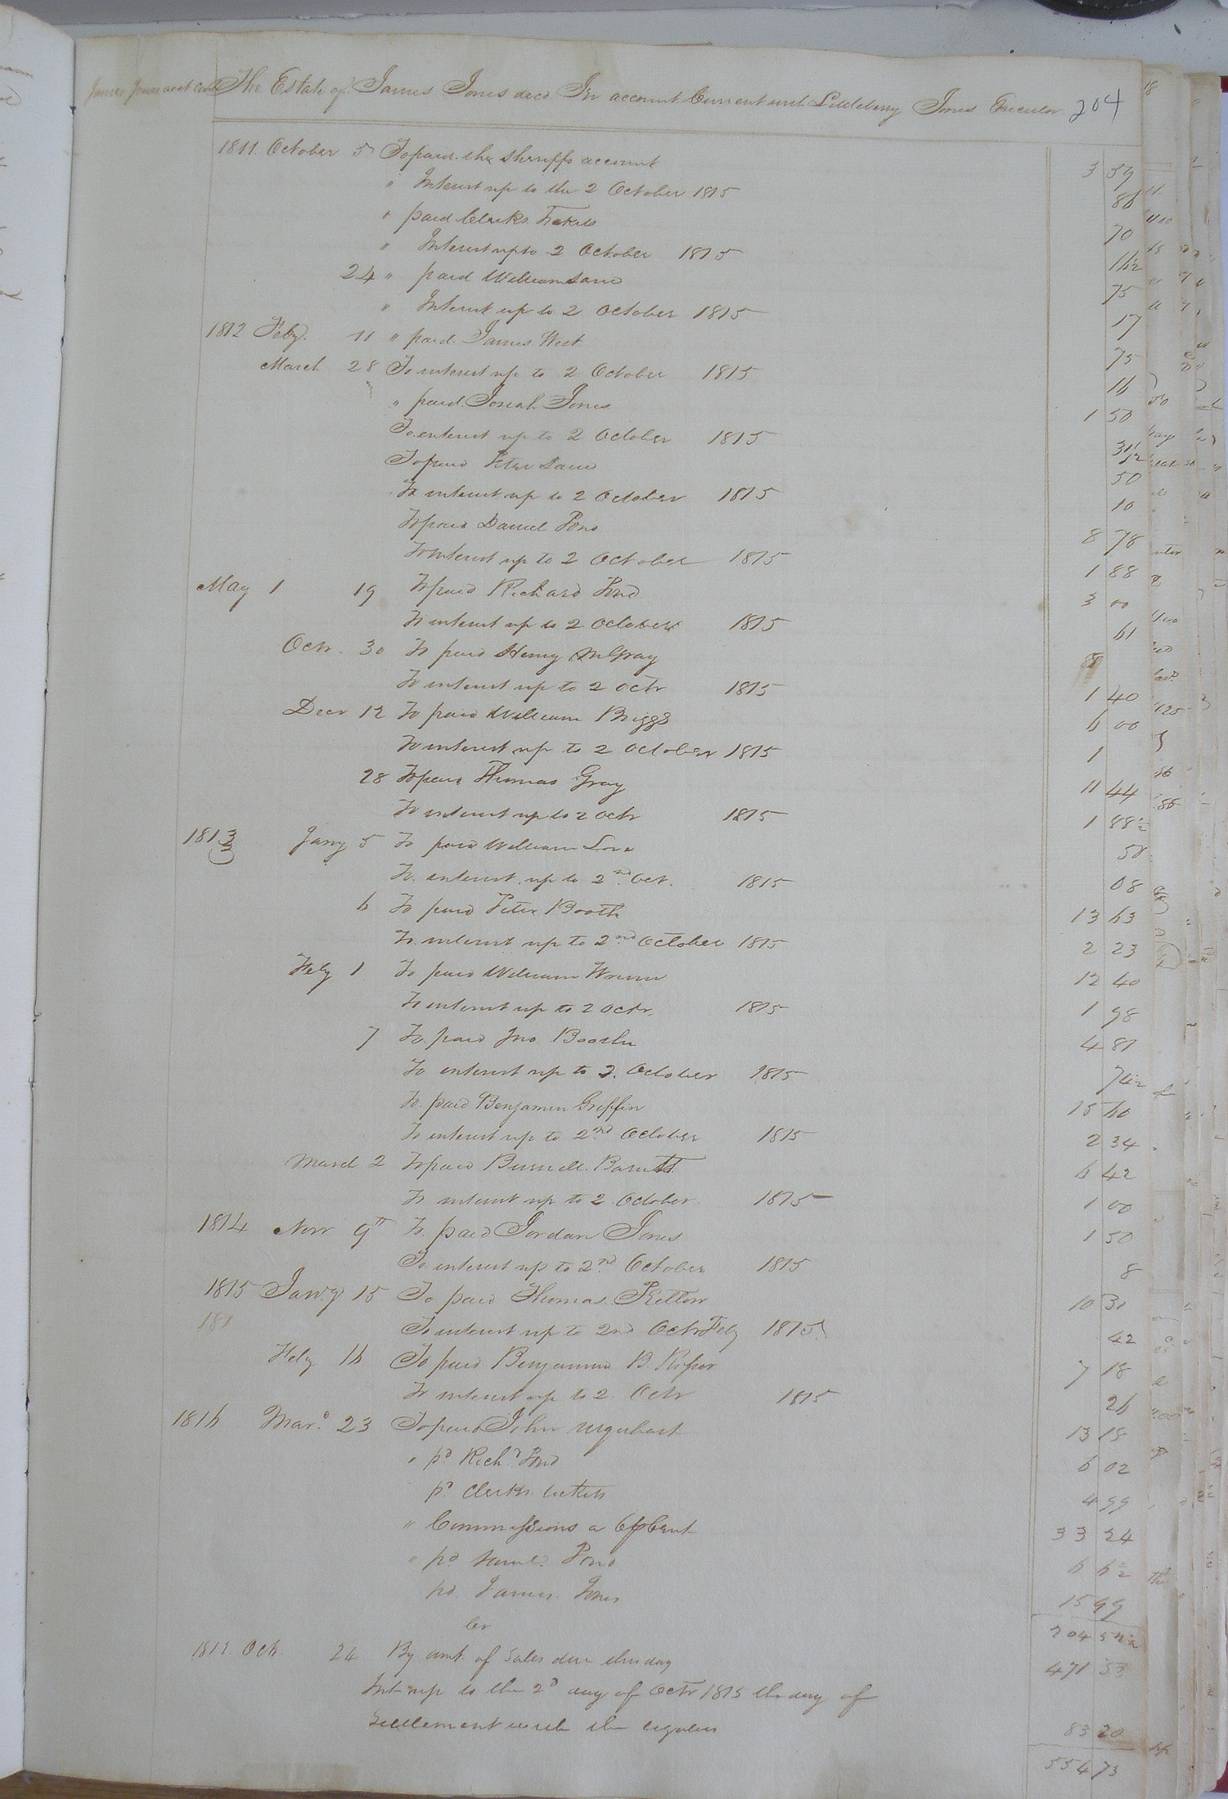 The Estate of James Jones decd In account Current with Littleberry Jones Executor 204
1811 October 5 To paid the Sheriffs account 3 59
" Interest up to the 2 October 1815 86
" paid Clerks Tickets 70
" Interest up to 2 October 1815 16½
24 " paid William Lane 75
" Interest up to 2 October 1815 17
1812 Feby. 11 " paid James West 75
March 28 To interest up to 2 October 1815 16
" paid Josiah Jones 1 50
To interest up to 2 October 1815 31½
To paid Peter Lane 50
To interest up to 2 October 1815 10
To paid Daniel Pond 8 78
To interest up to 2 October 1815 1 88
May 1 19 To paid Richard Pond 3 00
To interest up to 2 October 1815 61
Octr. 30 To paid Henry M Gray 8
To interest up to 2 Octr 1815 1 40
Decr 12 To paid William Briggs 6 00
To interest up to 2 October 1815 1
28 To paid Thomas Gray 11 44
To interest up to 2 Octr 1815 1 88½
1813 Jany 5 To paid William Love 50
To interest up to 2nd Oct. 1815 08
6 To paid Peter Booth 13 63
To interest up to 2nd October 1815 2 23
Feby 1 To paid William Wrenn 12 40
To interest up to 2 Octr. 1815 1 98
7 To paid Jno Booth 4 81
To interest up to 2. October 1815 74½
To paid Benjamin Griffin 15 60
To interest up to 2nd October 1815 2 34
March 2 To paid Burwell Barrett 6 42
To interest up to 2 October 1815 1 00
1814 Novr 9th To paid Jordan Jones 1 50
To interest up to 2nd October 1815 8
1815 Jan'y 15 To paid Thomas Pretlow 10 31
181 To interest up to 2nd Octr Feby 1815 42
Feby 16 To paid Benjamin B. 7 18
To interest up to 2 Octr 1815 26
1816 Mar. 23 To paid John Urquhart 13 18
" pd Richd Pond 6 02
pd Clerks tickets 4 99
" Commissions a 6 pCent 33 24
" pd Saml. Pond 6 62
pd James Jones 15 99
Cr 204 52½
1812 Oct. 24 By amt. of Sales due this day 471 53
Int. up to the 2d day of Octr 1815 the day of
Settlement with the legatees 83 20
554 73